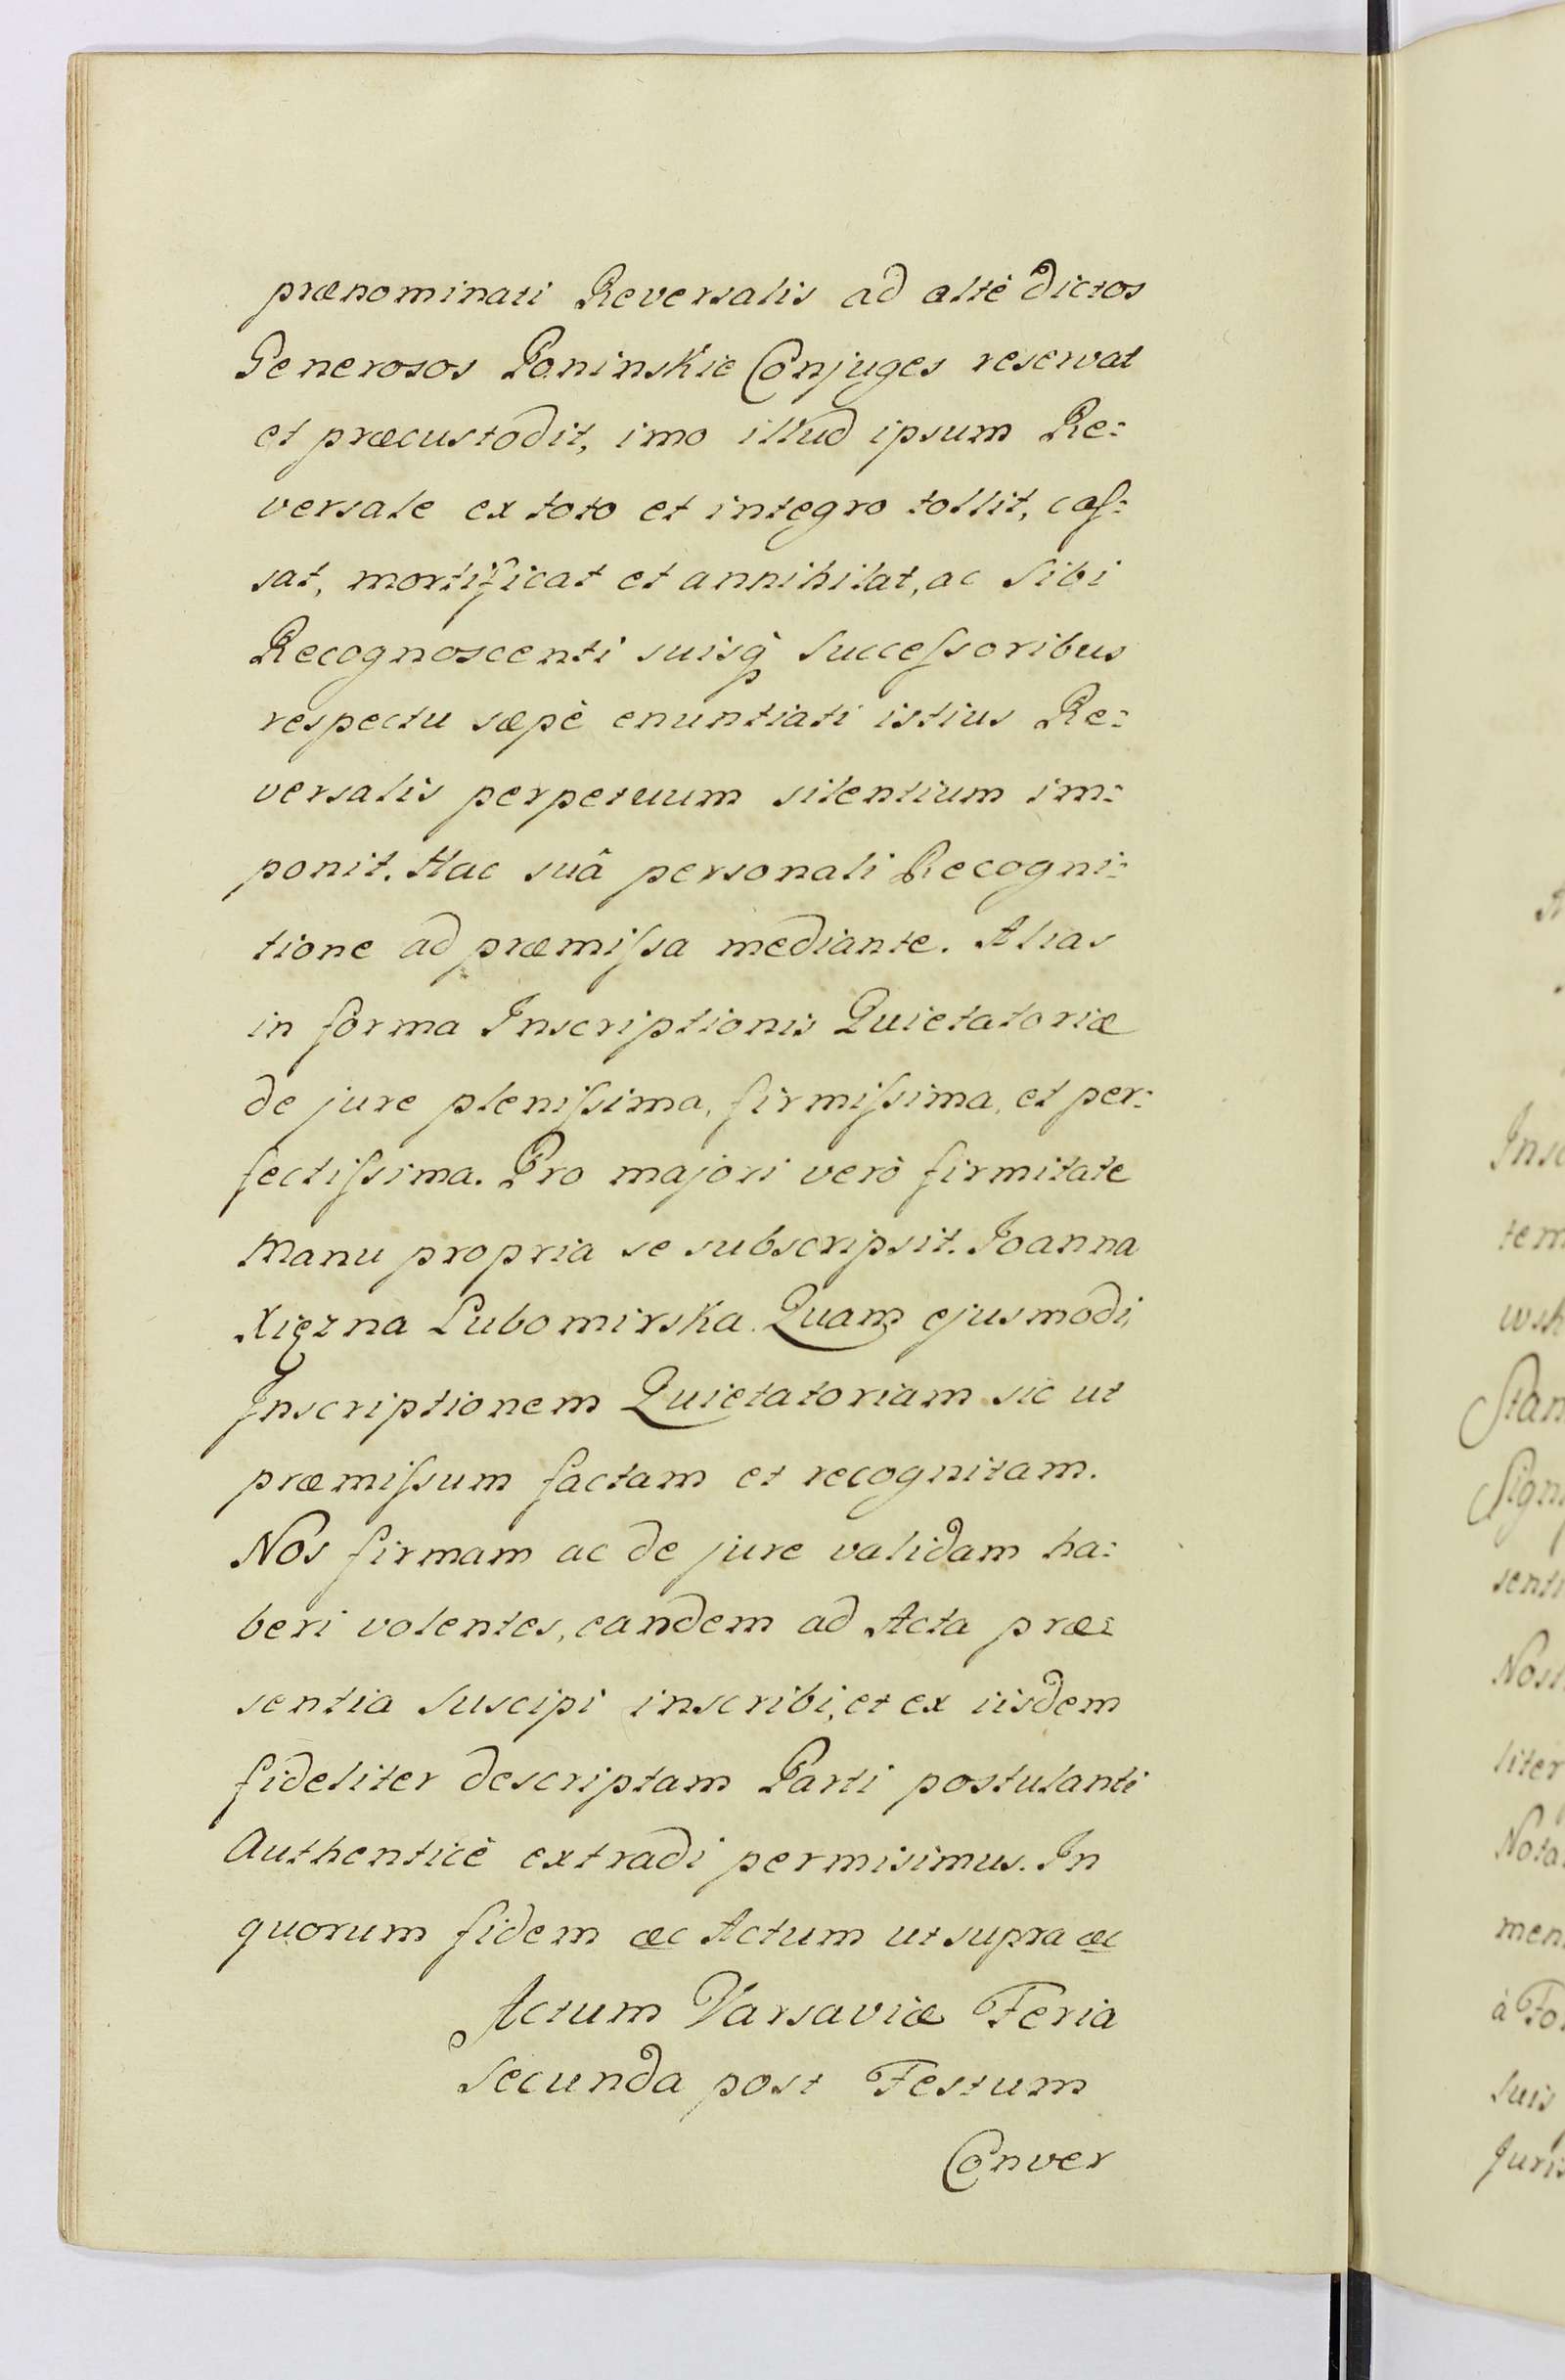 prænominati Reversalis ad altè dictos
Generosos Poninskie Conjuges reservat
et præcustodit, imo illud ipsum Re:
versale ex toto et integro tollit, caſ:
sat, mortificat et annihilat, ac Sibi
Recognoscenti suisq̀ Succeſsoribus
respectu sæpè enuntiati istius Re:
versalis perpetuum silentium im:
ponit. Hac suâ personali Recogni:
tione ad præmiſsa mediante. Alias
in forma Inscriptionis Quietatoriæ
de jure pleniſsima, firmiſsima, et per:
fectiſsima. Pro majori verò firmitate
Manu propria se subscripsit. Joanna
Xięzna Lubomirska. Quam ejusmodi
Inscriptionem Quietatoriam sic ut
præmiſsum factam et recognitam.
Nos firmam ac de jure validam ha:
beri volentes, eandem ad Acta præ:
sentia Suscipi inscribi, et ex iisdem
fideliter descriptam Parti postulanti
Authenticè extradi permisimus. In
quorum fidem &c Actum ut supra &c
Actum Varsaviæ Feria
Secunda post Festum
Conver
Insc
tem
wsk
Stan
Sign
senti
Nost
liter
Nota
men
à Fo
Suis
Juris